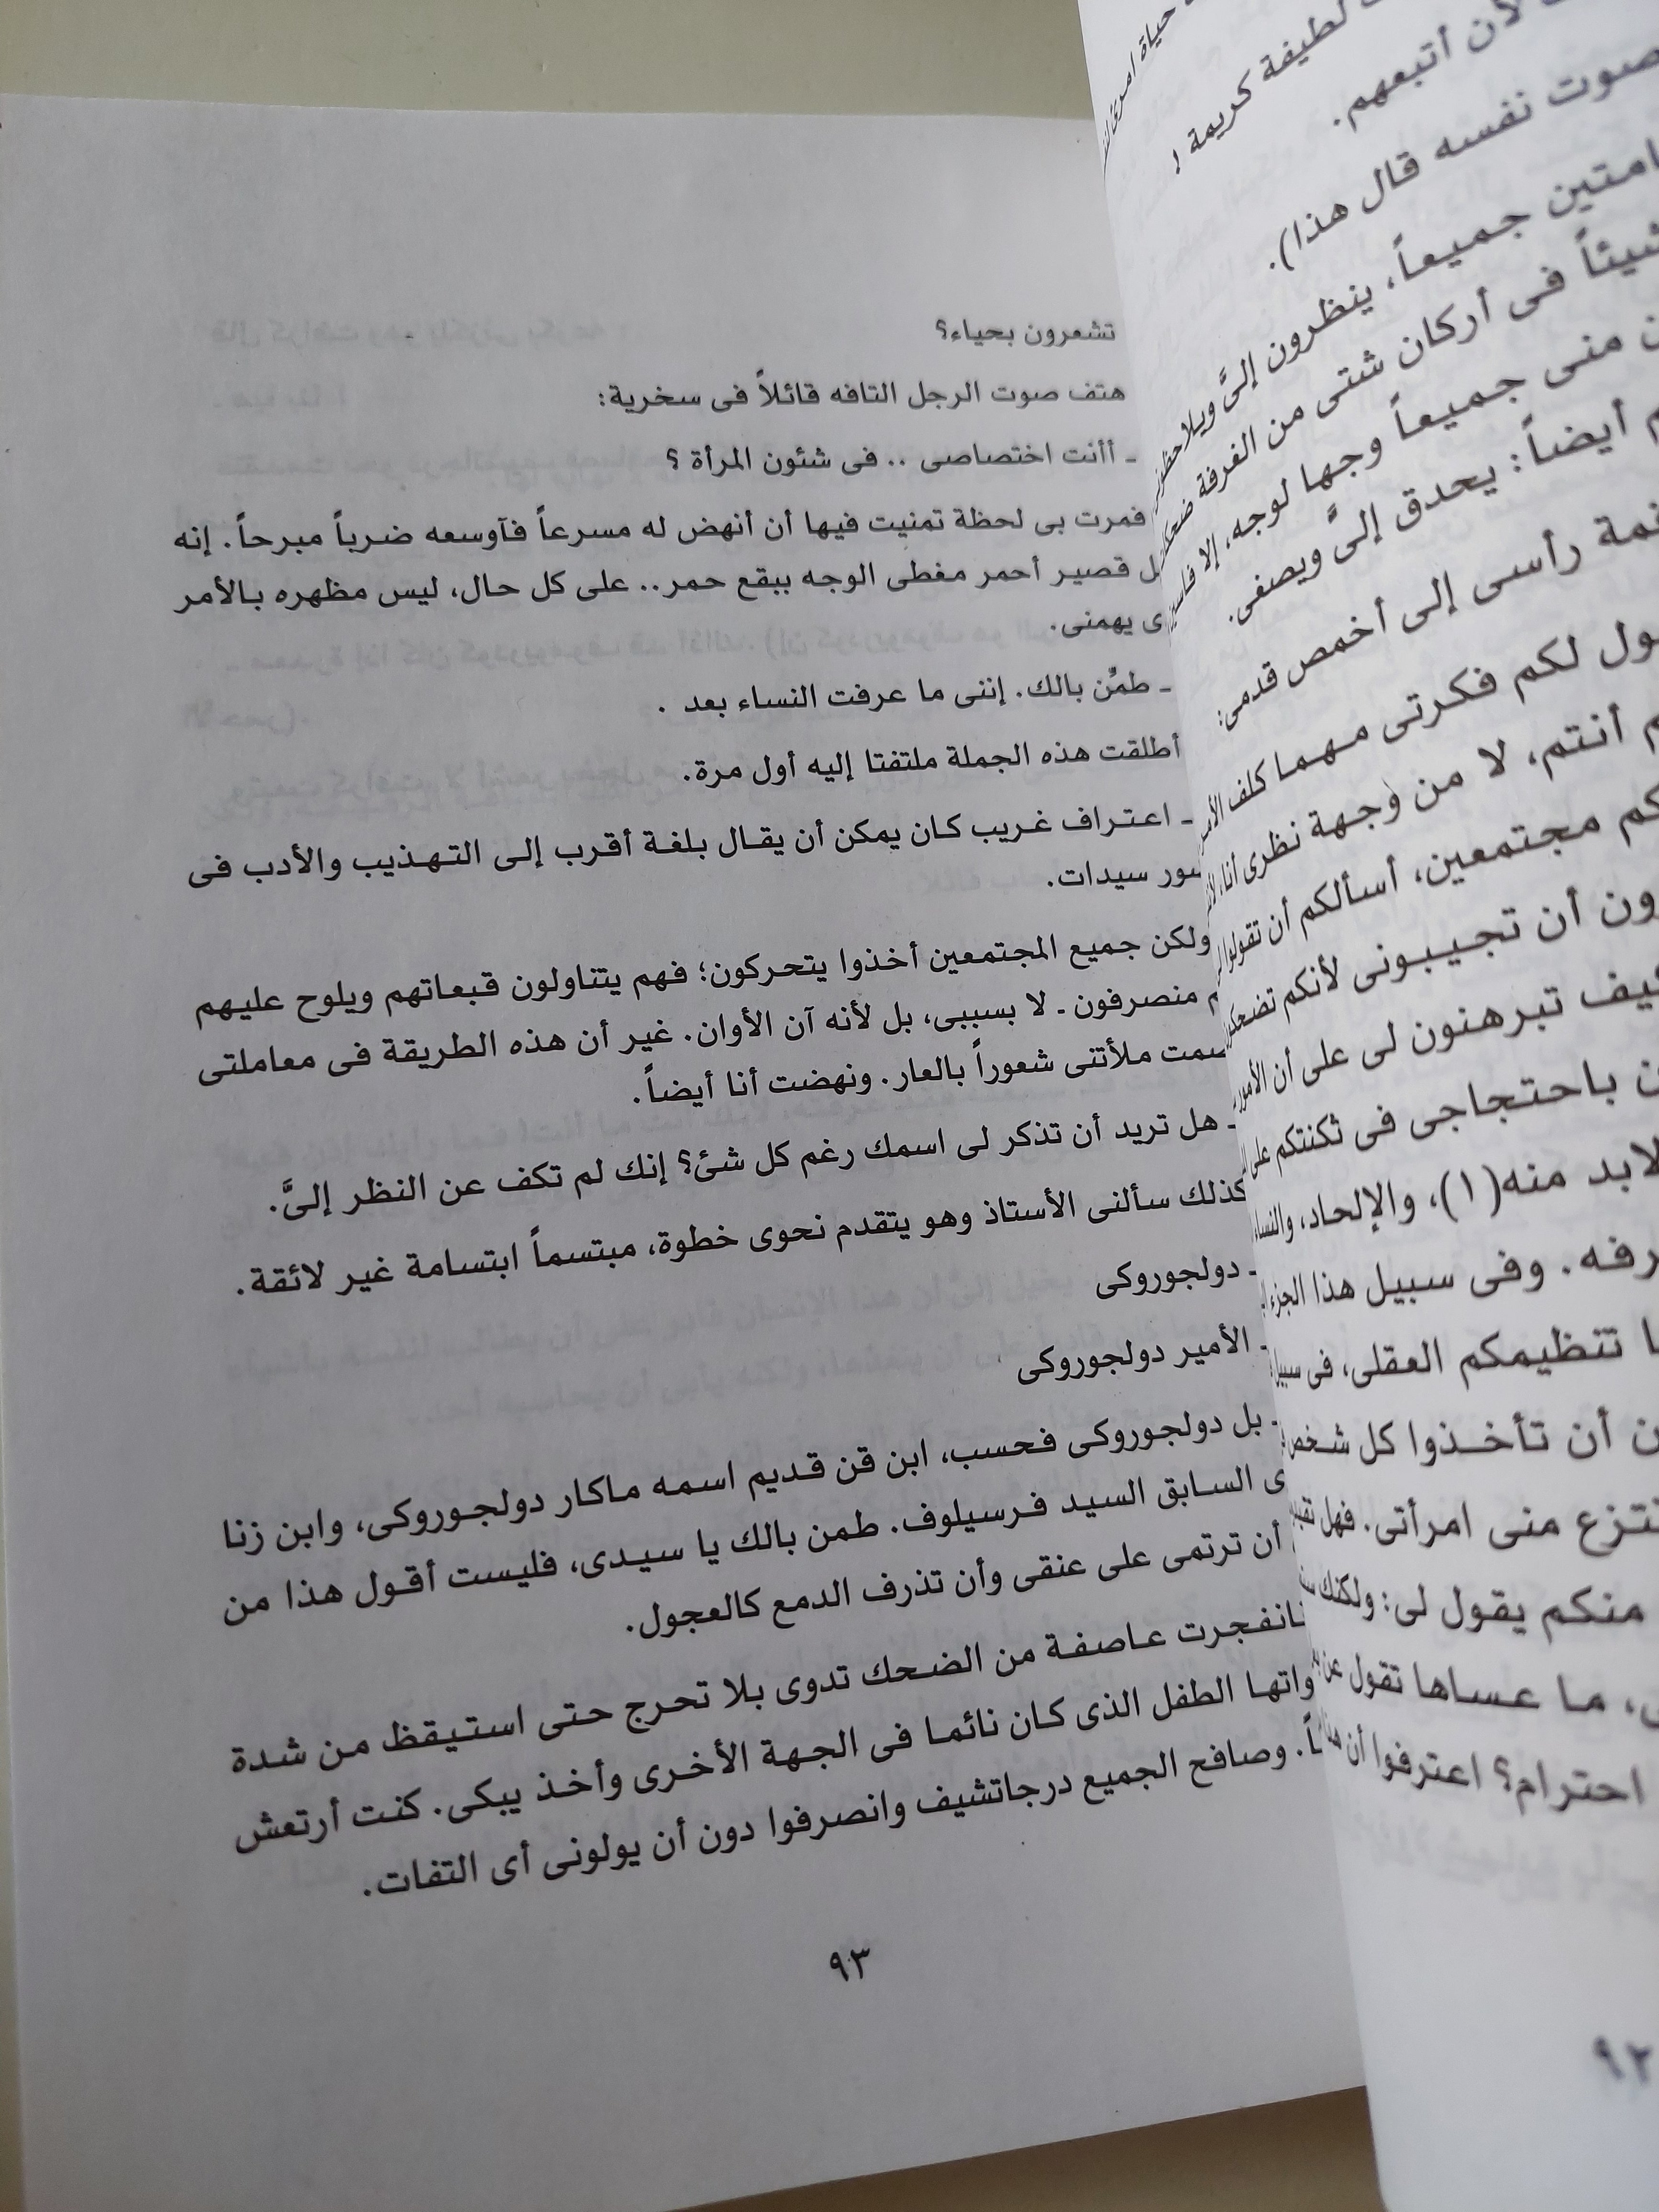 حياة امرئ
لطيفة كريمة
لأن أتبعهم.
صوت نفسه قال هذا).
جميعاً، ينظرون إلىَّ ويلاحظو
فى أركان شتى من الغرفة
منى جميعاً وجها لوجه، إلا
أيضاً: يحدق إلىَّ ويصغى.
قمة رأسى إلى أخمص قدمى:
لكم فكرتى مهما كلف الأمر
أنتم، لا من وجهة نظرى أنا،
مجتمعين، أسألكم أن تقولوا
أن تجيبونى لأنكم تضحكو
تبرهنون لى على أن الأمور
باحتجاجى فى ثكنتكم على
لابد منه(١)، والإلحاد، والنساء
وفى سبيل هذا الجزء
تنظيمكم العقلى، فى سبيل
أن تأخذوا كل شخص
منى امرأتى. فهل
منكم يقول لى: ولكنك
ما عساها تقول عن
احترام؟ اعترفوا أن هذا
٩٢
تشعرون بحياء؟
هتف صوت الرجل التافه قائلاً فى سخرية:
ـ أأنت اختصاصى .. فى شئون المرأة ؟
فمرت بى لحظة تمنيت فيها أن أنهض له مسرعاً فآوسعه ضرباً مبرحاً. إنه
قصير أحمر مغطى الوجه ببقع حمر.. على كل حال، ليس مظهره بالأمر
يهمنى.
ـ طمِّن بالك. إننى ما عرفت النساء بعد .
أطلقت هذه الجملة ملتفتا إليه أول مرة.
ـ اعتراف غريب كان يمكن أن يقال بلغة أقرب إلى التهذيب والأدب فى
سيدات.
ولكن جميع المجتمعين أخذوا يتحركون؛ فهم يتناولون قبعاتهم ويلوح عليهم
منصرفون ـ لا بسببى، بل لأنه آن الأوان. غير أن هذه الطريقة فى معاملتى
ملأتنى شعوراً بالعار. ونهضت أنا أيضاً.
ـ هل تريد أن تذكر لى اسمك رغم كل شئ؟ إنك لم تكف عن النظر إلىَّ.
كذلك سألنى الأستاذ وهو يتقدم نحوى خطوة، مبتسماً ابتسامة غير لائقة.
ـ دولجوروكى
ـ الأمير دولجوروكى
ـ بل دولجوروكى فحسب، ابن قن قديم اسمه ماكار دولجوروكى، وابن زنا
السابق السيد فرسيلوف. طمن بالك يا سيدى، فليست أقول هذا من
أن ترتمى على عنقى وأن تذرف الدمع كالعجول.
فانفجرت عاصفة من الضحك تدوى بلا تحرج حتى استيقظ من شدة
الطفل الذى كان نائما فى الجهة الأخرى وأخذ يبكى. كنت أرتعش
وصافح الجميع درجاتشيف وانصرفوا دون أن يولونى أى التفات.
٩٣